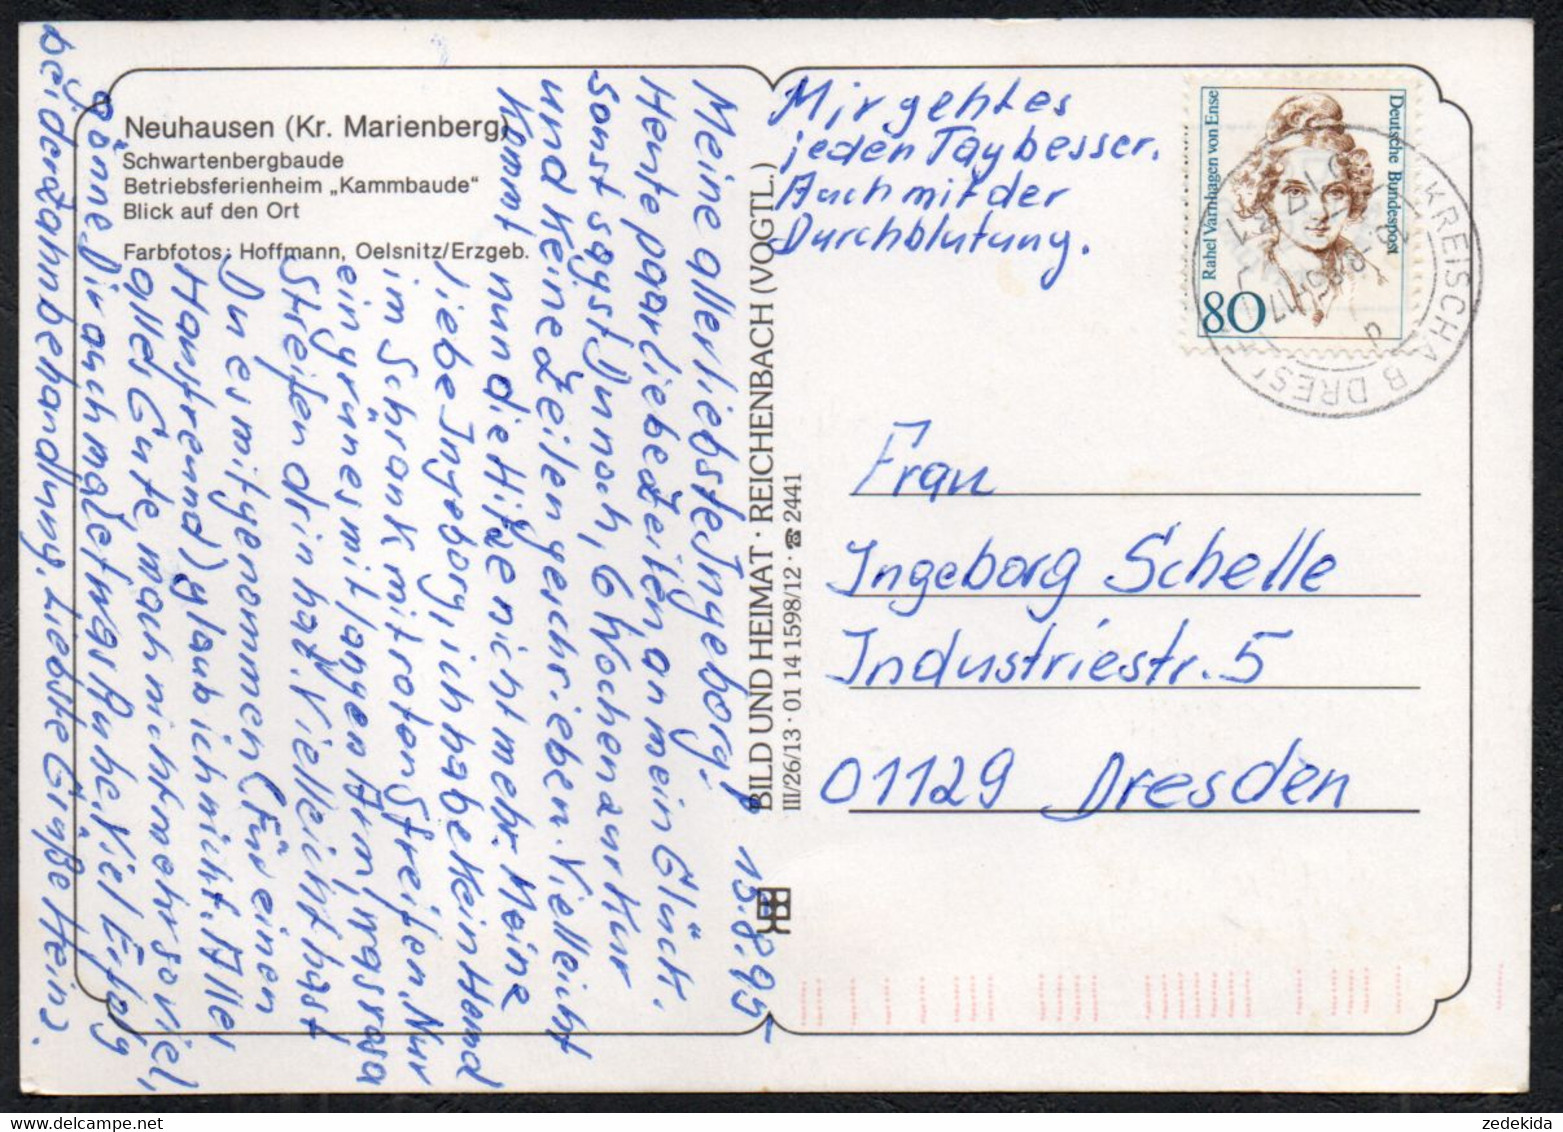 Neuhausen (Kr. Marienberg)
Schwartenbergbaude
Betriebsferienheim „Kammbaude"
Blick auf den Ort
Farbfotos: Hoffmann, Oelsnitz/Erzgeb.
13.8.95
Meine allerliebste Ingeborg!
Heute paar liebe Zeilen an mein Glück.
Sonst sagst Du noch, 6 Wochen zur Kur
und keine Zeilen geschrieben. Vielleicht
kommt nun die Hitze nicht mehr. Meine
liebe Ingeborg, ich habe kein Hemd
im Schrank mit roten Streifen. Nur
ein grünes mit langen Arm, was rosa
Streifen drin hat. Vielleicht hast
Du es mitgenommen (Für einen
Hausfreund) glaub ich nicht. Alles
alles Gute, mach nicht mehr so viel,
gönne Dir auch mal etwas Ruhe. Viel Erfolg
bei der Zahnbehandlung. Liebste Grüße Heinz.
Mir geht es
jeden Tag besser.
Auch mit der
Durchblutung.
BILD UND HEIMAT · REICHENBACH (VOGTL.)
III/26/13 · 01 14 1598/12 · ☎ 2441
Deutsche Bundespost
Rahel Varnhagen von Ense
80
KREISCHA B DRESD
Frau
Ingeborg Schelle
Industriestr. 5
01129 Dresden
zedekida